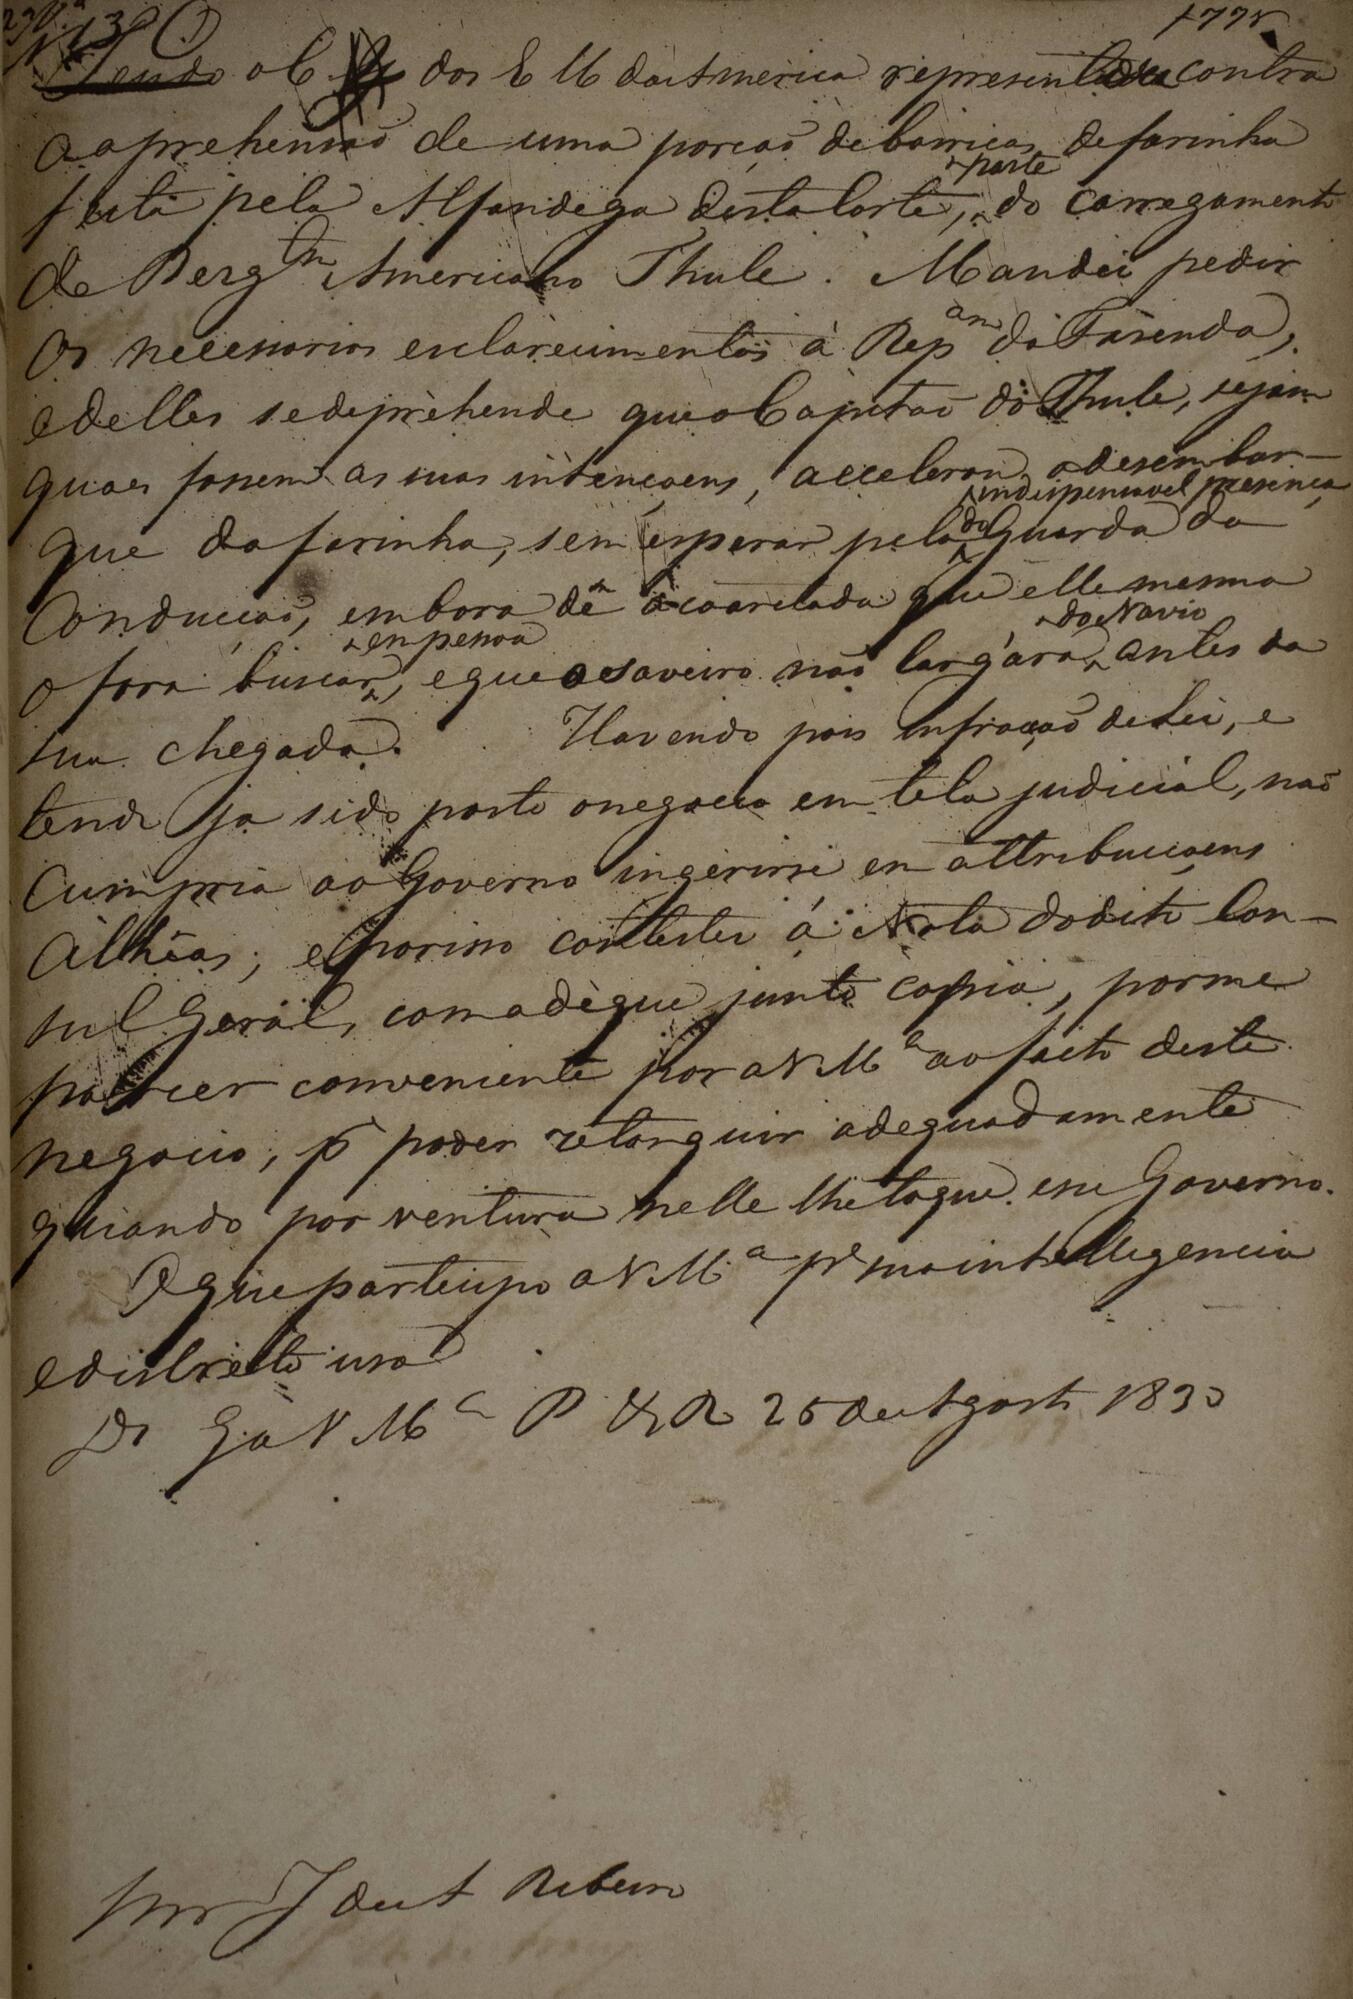 2ª Vª 1778
N 13
Tendo o C G dos E U da America representado contra
a aprehensaõ de uma porçaõ de barricas de farinha
feita pela Alfandega desta Corte, parte do carregamento
do Bergtm Americano Thule. Mandei pedir
os necessarios esclarecimentos á Repam da Fasenda,
e delles se deprehende que o Capitaõ do Thule, sejam
quaes fossem as suas intençoens, accelerou o desembar-
que da farinha, sem esperar pela indispensavel presença do Guarda da
Conducçaõ, embora dê a coarctada que elle mesmo
o fora buscar em pessoa, e que o saveiro naõ largára do Navio antes da
sua chegada. Havendo pois infracçaõ de Lei, e
tendo ja sido posto o negocio em tela judicial, naõ
cumpria ao Governo ingerirse em attribuiçoens
alhêas; e por isso contestei á Nota do dito Con-
sul Geral, com a de que junto copia, por me
parecer conveniente por a V Mce ao facto deste
negocio, pª poder retorquir adequadamente
quando por ventura nelle lhe toque esse Governo.
O que participo a V Mce pª sua intelligencia
e discreto uso
Ds Ge a V Mce P R 25 de Agosto 1830
Snr J de A Ribeiro